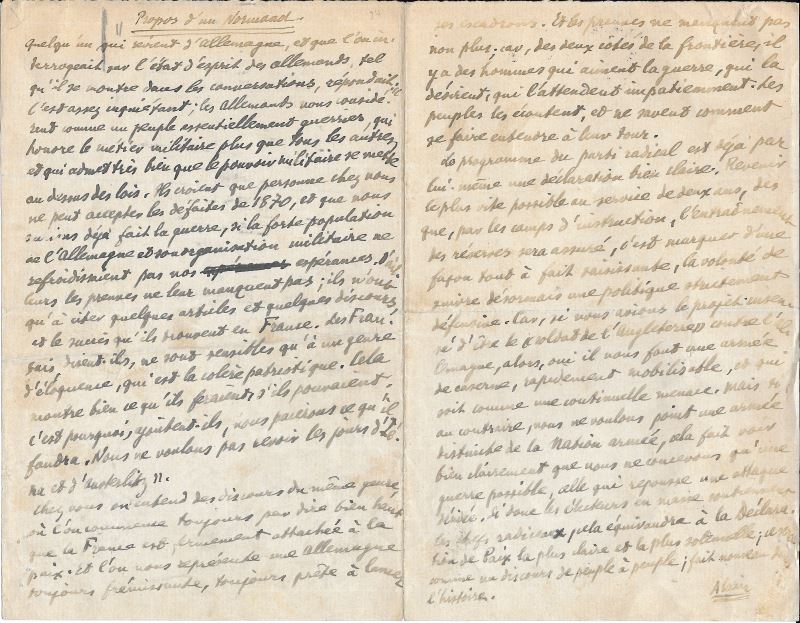 Propos d'un Normand.
quelqu'un, qui revient d'allemagne, et que l'on in-
terrogeait sur l'état d'esprit des allemands, tel
qu'il se montre dans les conversations, répondait: "
C'est assez inquiétant; les allemands nous considè-
rent comme un peuple essentiellement guerrier, qui
honore le métier militaire plus que tous les autres,
et qui admet très bien que le pouvoir militaire se mette
au dessus des lois. Ils croient que personne chez nous
ne peut accepter les défaites de 1870, et que nous
aurions déjà fait la guerre, si la forte population
de l'Allemagne et son organisation militaire ne
refroidissaient pas nos espérances. D'ail-
leurs les preuves ne leur manquent pas; ils n'ont
qu'à citer quelques articles et quelques discours,
et le succès qu'ils trouvent en France. Les Fran-
çais, disent-ils, ne sont sensibles qu'à un genre
d'éloquence, qui est la colère patriotique. Cela
montre bien ce qu'ils feraient, s'ils pouvaient.
C'est pourquoi, ajoutent-ils, nous paierons ce qu'il
faudra. Nous ne voulons pas revoir les jours d'Ié-
na et d'Austerlitz ".
Chez nous on entend des discours du même genre,
où l'on commence toujours par dire bien haut
que la France est fermement attachée à la
paix. Et l'on nous représente une Allemagne
toujours frémissante, toujours prête à lancer
ses escadrons. Et les preuves ne manquent pas
non plus. car, des deux côtés de la frontière, il
y a des hommes qui aiment la guerre, qui la
désirent, qui l'attendent impatiemment. Les
peuples les écoutent, et ne savent comment
se faire entendre à leur tour.
Le programme du parti radical est déjà par
lui-même une déclaration bien claire. Revenir
le plus vite possible au service de deux ans, dès
que, par les camps d'instruction, l'entraînement
des réserves sera assuré, c'est marquer d'une
façon tout à fait saisissante, la volonté de
suivre désormais une politique strictement
défensive. Car, si nous avions le projet insen-
sé d'être le "soldat de l'Angleterre" contre l'al-
lemagne, alors, oui il nous faut une armée
de caserne, rapidement mobilisable, et qui
soit comme une continuelle menace. Mais si
au contraire, nous ne voulons point une armée
distincte de la Nation armée, cela fait voir
bien clairement que nous ne concevons qu'une
guerre possible, celle qui repousse une attaque
Si donc les électeurs en masse
les radicaux, cela équivaudra à la Déclara-
tion de Paix la plus claire et la plus solennelle;
comme un discours de peuple à peuple; fait nouveau dans
l'histoire.
Alain